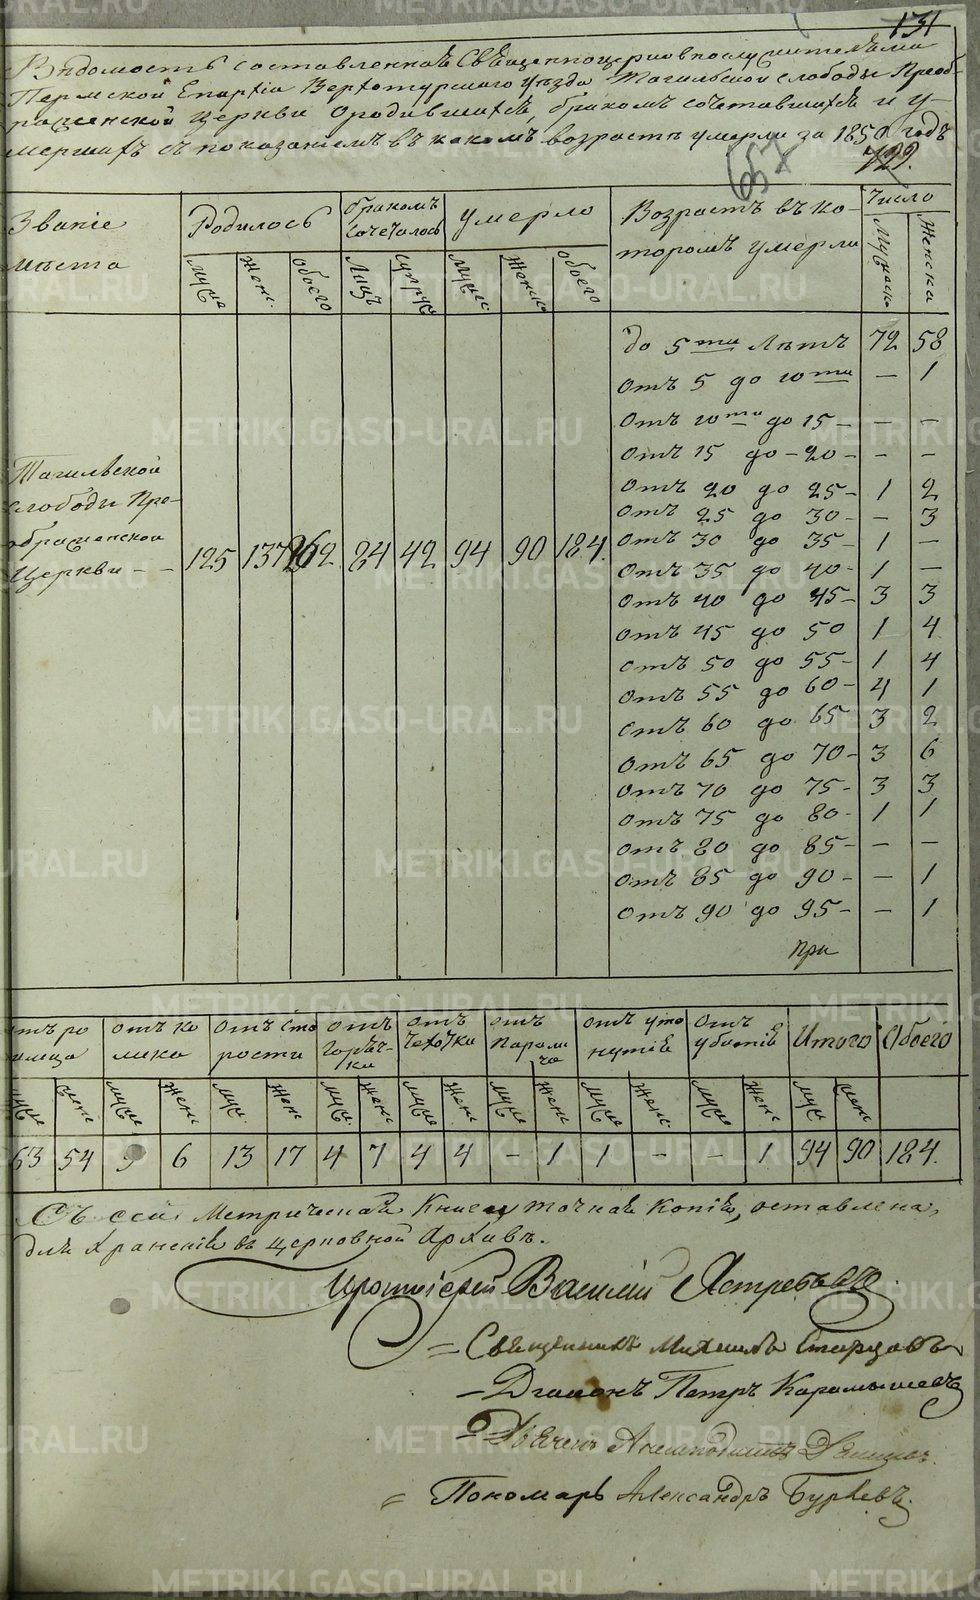 131
Ведомость составленная Священноцерковнослужителями
Пермской Епархіи Верхотурскаго уезда Тагильской слободы Преоб-
раженской церкви о родившихся, бракомъ сочетавшихся и у-
мершихъ съ показаніемъ въ какомъ возрасте умерли за 1850 годъ
657
722.
Званіе места
Родилось
бракомъ сочеталось
умерло
Возрастъ въ ко-
торомъ умерли
Число
муж женс. обоего Лицъ супруж муж женс обоего
Мужска Женска
до 5ти Летъ 72 58
отъ 5 до 10ти — 1
отъ 10ти до 15 – – –
отъ 15 до – 20 – – –
отъ 20 до 25 – 1 2
отъ 25 до 30 – – 3
отъ 30 до 35 – 1 –
отъ 35 до 40 – 1 –
отъ 40 до 45 – 3 3
отъ 45 до 50 1 4
отъ 50 до 55 – 1 4
отъ 55 до 60 – 4 1
отъ 60 до 65 3 2
отъ 65 до 70 – 3 6
отъ 70 до 75 – 3 3
отъ 75 до 80 – 1 1
отъ 80 до 85 – – –
отъ 85 до 90 – – 1
отъ 90 до 95 – – 1
при
Тагильской
слободы Пре-
ображенской
Церкви – – 125 137 262 84 42 94 90 184.
отъ ро
димца
отъ ко
лика
отъ Ста
рости
отъ
горяч-
ки
отъ
чехотки
отъ
Парали
ча
отъ уто
нутія
отъ
убитія
Итого
Обоего
муж женс муж женс муж женс муж женс муж женс муж женс муж женс муж женс муж женс
63 54 9 6 13 17 4 7 4 4 – 1 1 – – 1 94 90 184.
Съ сей Метрической Книги точная копія, оставлена,
для храненія въ церковной Архиве.
Протоіерей Василій Ястребовъ
= Священникъ Михаилъ Старцовъ
– Діаконъ Петръ Карамышевъ
– Дьячекъ
= Пономарь Александръ Бурхевъ.
METRIKI.GASO-URAL.RU